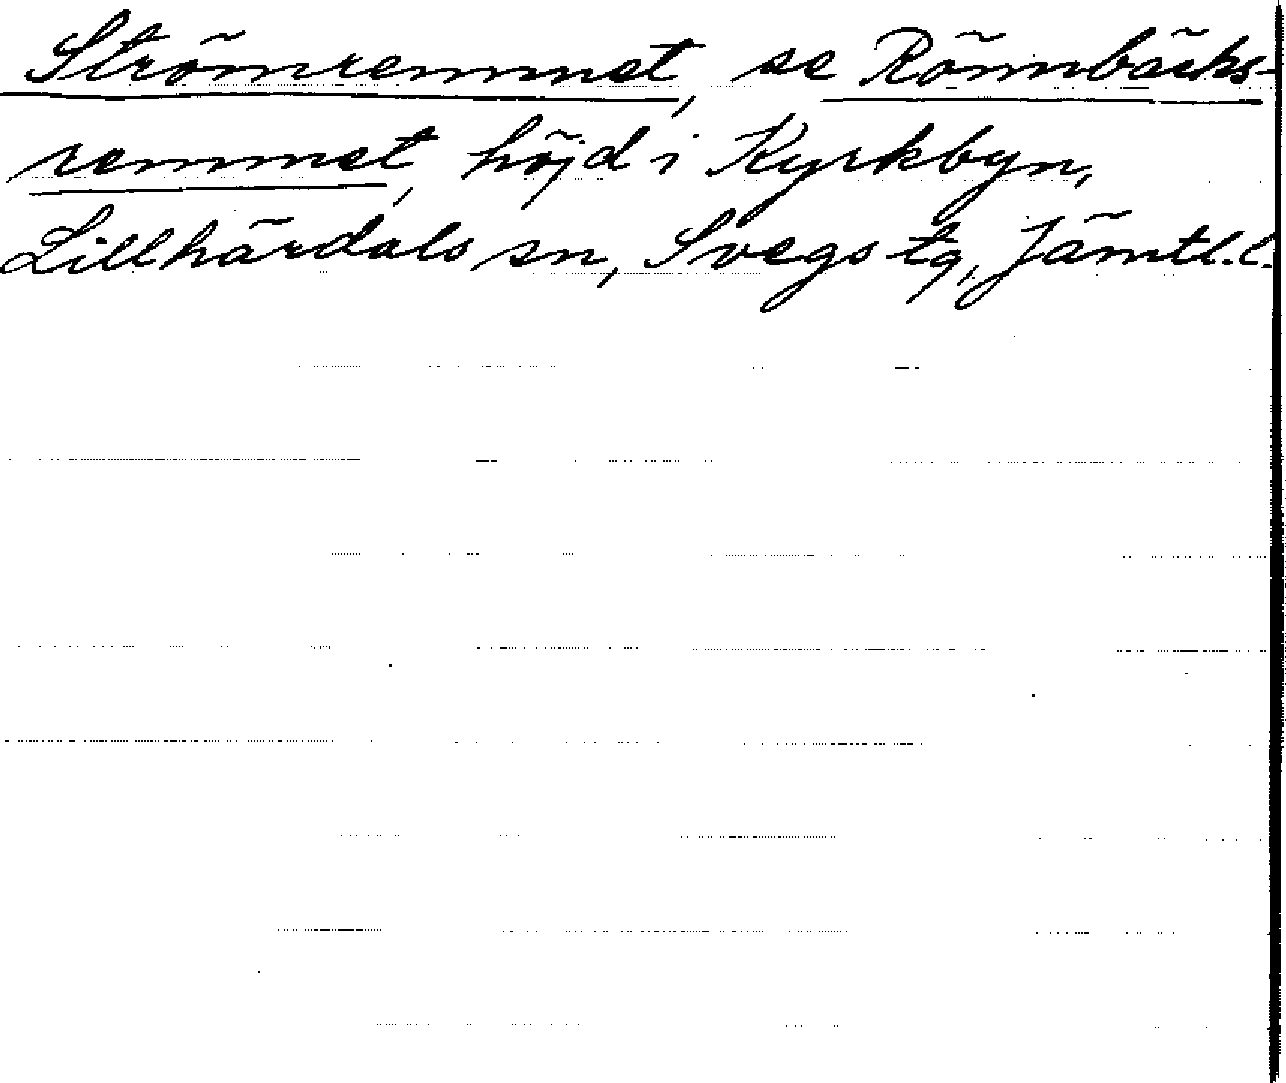 Strömremmet, se Rönnbäcks-
remmet, höjd i Kyrkbyn,
Lillhärdals sn, Svegs tg, Jämtl. l.